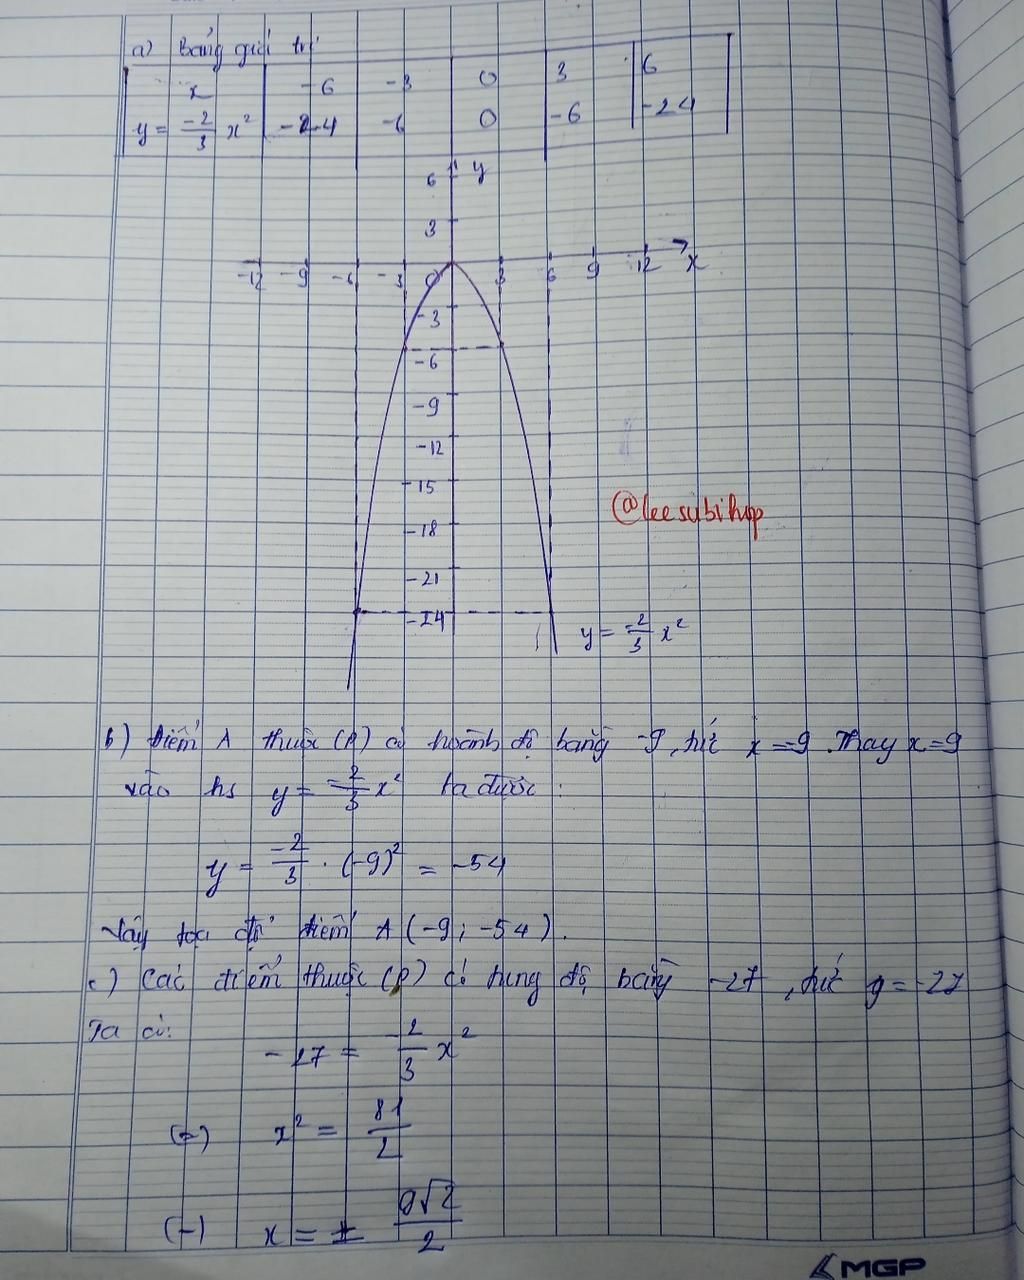 a) Bảng giá trị
x -6 -3 0 3 6
y = -2/3 x² -24 -6 0 -6 -24
y
6
3
-12 -9 -6 -3 0 3 6 9 12 x
-3
-6
-9
-12
15
-18
-21
-24
@leesubihop
y = -2/3 x²
b) Điểm A thuộc (P) có hoành độ bằng -9, tức x = -9. Thay x = 9
vào hs y = -2/3 x² ta được:
y = -2/3 . (-9)² = -54
Vậy tọa độ điểm A (-9; -54).
c) Các điểm thuộc (P) có tung độ bằng -27, tức y = -27
Ta có:
-27 = -2/3 x²
x² = 81/2
x = ± 9√2/2
MGP